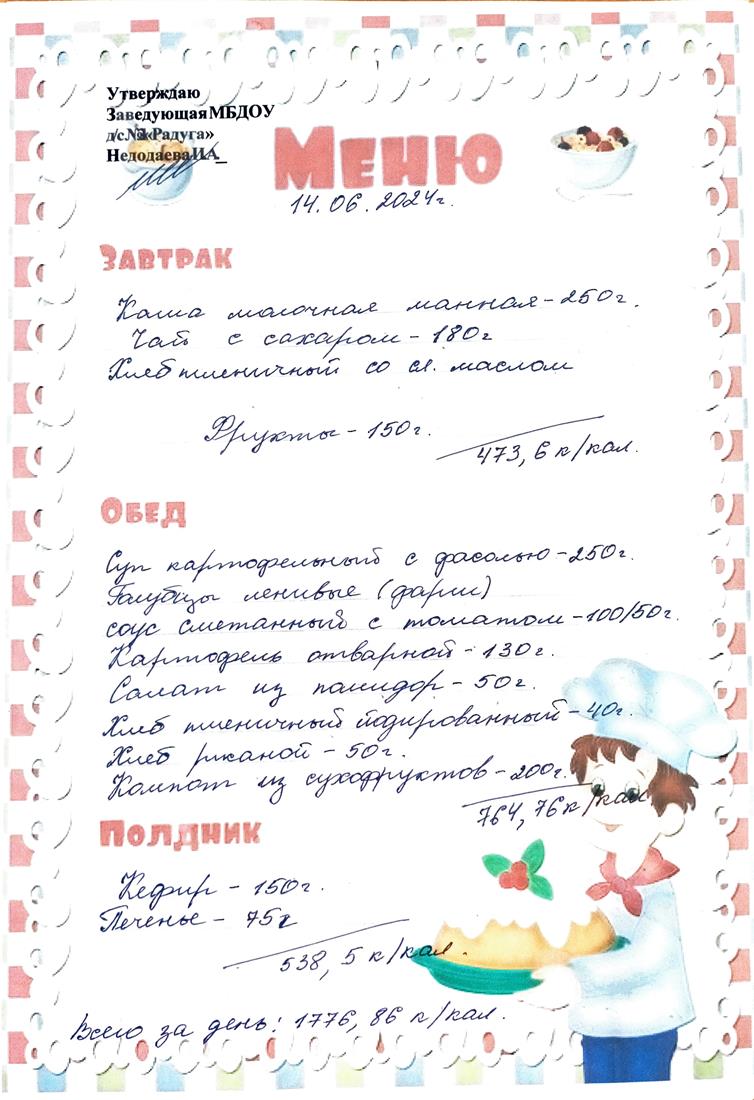 Утверждаю
Заведующая МБДОУ
д/с №3 «Радуга»
Недодаева И.А._
Меню
14.06.2024г.
Завтрак
Каша молочная манная - 250г.
Чай с сахаром - 180г
Хлеб пшеничный со сл. маслом
Фрукты - 150г.
473,6 к/кал.
Обед
Суп картофельный с фасолью - 250г.
Голубцы ленивые (фарш)
соус сметанный с томатом - 100/50г.
Картофель отварной - 130г.
Салат из помидор - 50г.
Хлеб пшеничный йодированный - 40г.
Хлеб ржаной - 50г.
Компот из сухофруктов - 200г.
764,76 к/кал.
Полдник
Кефир - 150г.
Печенье - 75г
538,5 к/кал.
Всего за день: 1776,86 к/кал.